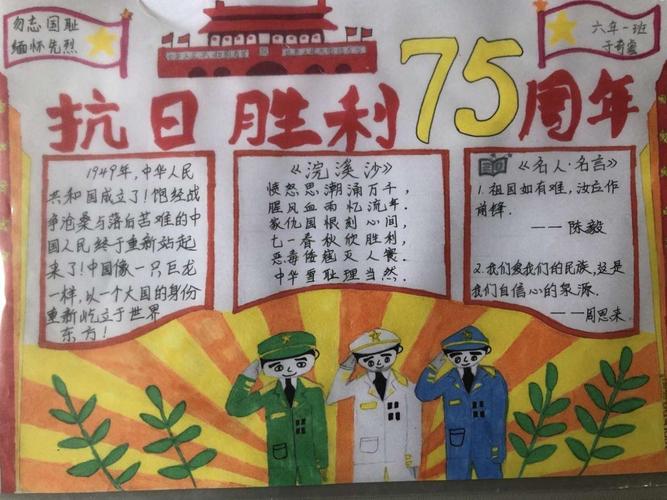 勿忘国耻
缅怀先烈
六年一班
抗日胜利75周年
1949年，中华人民
共和国成立了！饱经战
争沧桑与落后苦难的中
国人民终于重新站起
来了！中国像一只巨龙
一样，以一个大国的身份
重新屹立于世界
东方！
《浣溪沙》
愤怒思潮涌万千，
腥风血雨忆流年.
家仇国恨刻心间，
七一春秋欣胜利，
恶毒倭寇灭人寰.
中华雪耻理当然.
《名人·名言》
1.祖国如有难，汝应作
前锋.
——陈毅
2.我们爱我们的民族，这是
我们自信心的泉源.
——周恩来